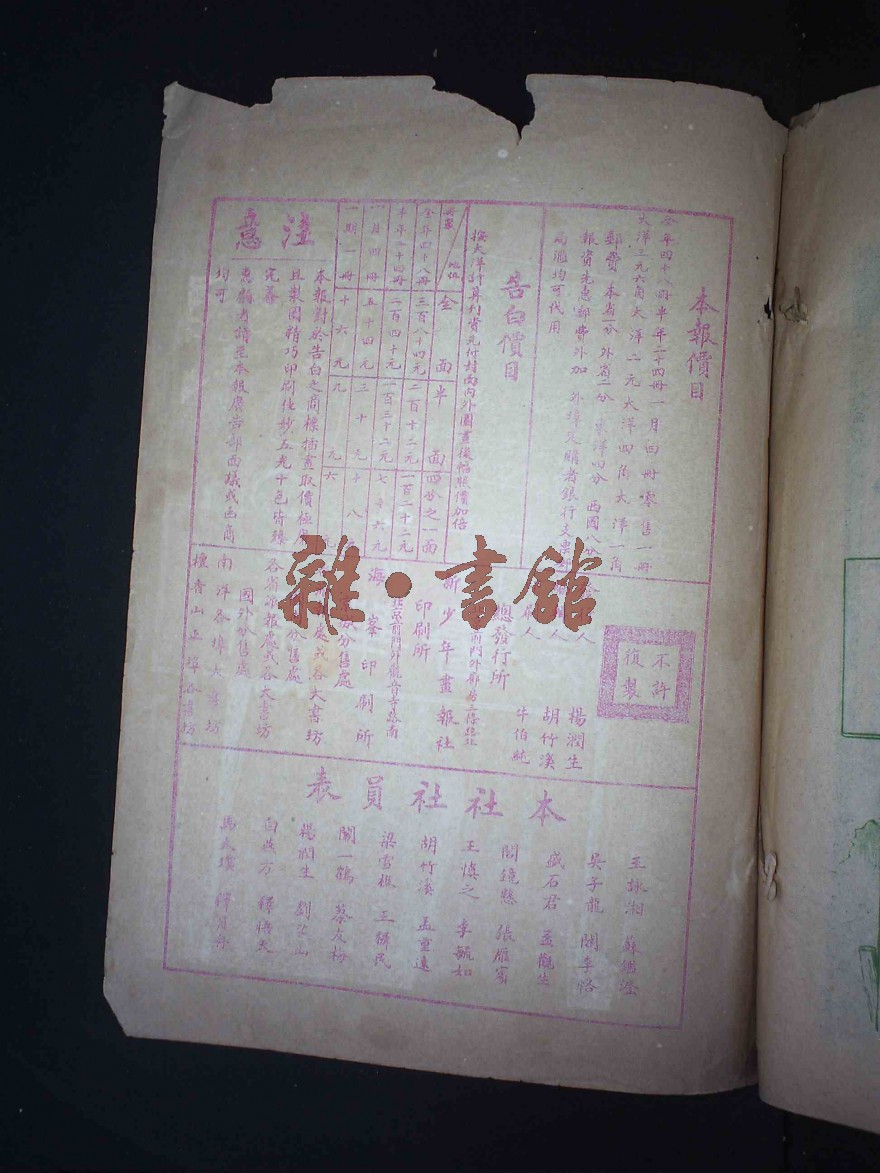 本報價目
全年四十八冊半年二十四冊一月四冊零售一冊
大洋三元六角大洋二元大洋四角大洋一角
郵費 本省一分 外省二分 東洋四分 西國八分
報資先惠郵費外加 外埠定購者銀行支票郵
局滙均可代用
告白價目
按大洋計算刊資先付封面內外圖畫後幅照價加倍
冊數 地位 全面 半面 四分之一面
全年四十八冊 三百八十四元 二百十二元 一百二十二元
半年二十四冊 二百四十元 一百三十二元 七十六元
一月四冊 五十四元 三十元 十八元
一期一冊 十六元 九元 六元
注意
本報對於告白之商標插畫取價極
且製圖精巧印刷佳妙五光十色皆臻
完善
惠顧者請至本報廣告部面議或函商
均可
不許復製
人 楊潤生
人 胡竹溪
人 牛伯純
總發行所
前門外
新少年畫報社
印刷所
北京前門外觀音寺路南
海峯印刷所
分售處
處或各大書坊
分售處
各省派報處或各大書坊
國外分售處
南洋各埠大書坊
檀香山正埠各書坊
本社社員表
王詠湘 蘇鑑瀅
吳子龍 關季恪
盛石君 孟觀生
閻鏡懸 張雁賓
王慎之 李毓如
胡竹溪 孟重遠
梁雪樵 王耕民
關一鶴 蔡友梅
楊潤生 劉
白燕方 釋悟天
馬
雜·書館